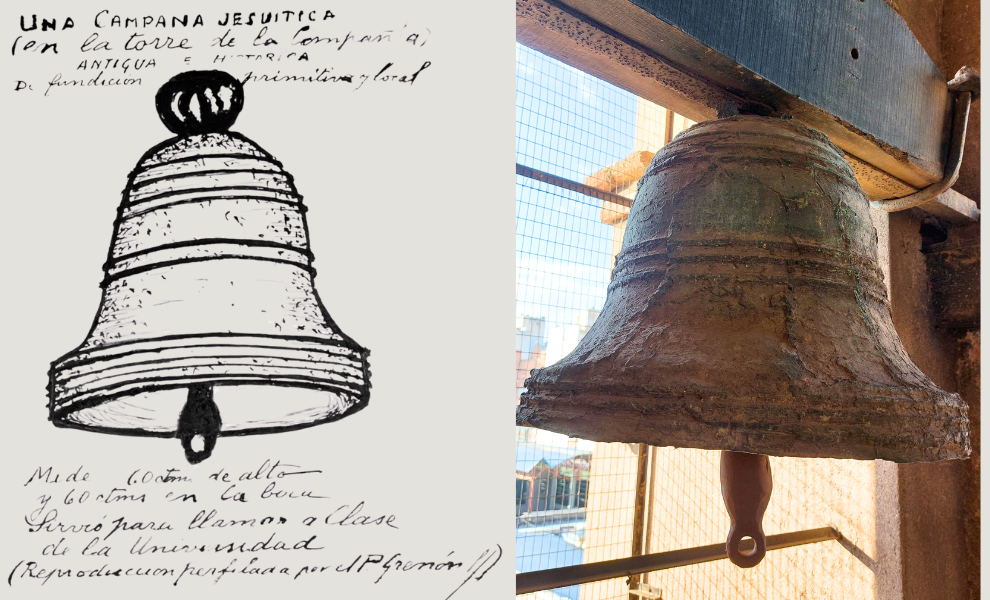 UNA CAMPANA JESUITICA
(en la torre de la Compañia)
ANTIGUA E HISTORICA
De fundicion primitiva y local
Mide 60 ctms de alto
y 60 ctms en la boca
Sirvió para llamar a Clase
de la Universidad
(Reproduccion perfilada por el P Grenón SJ)